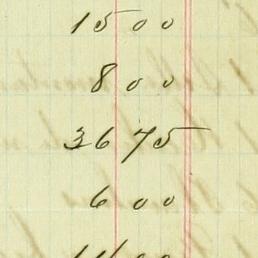 15 00
8 00
36 75
6 00